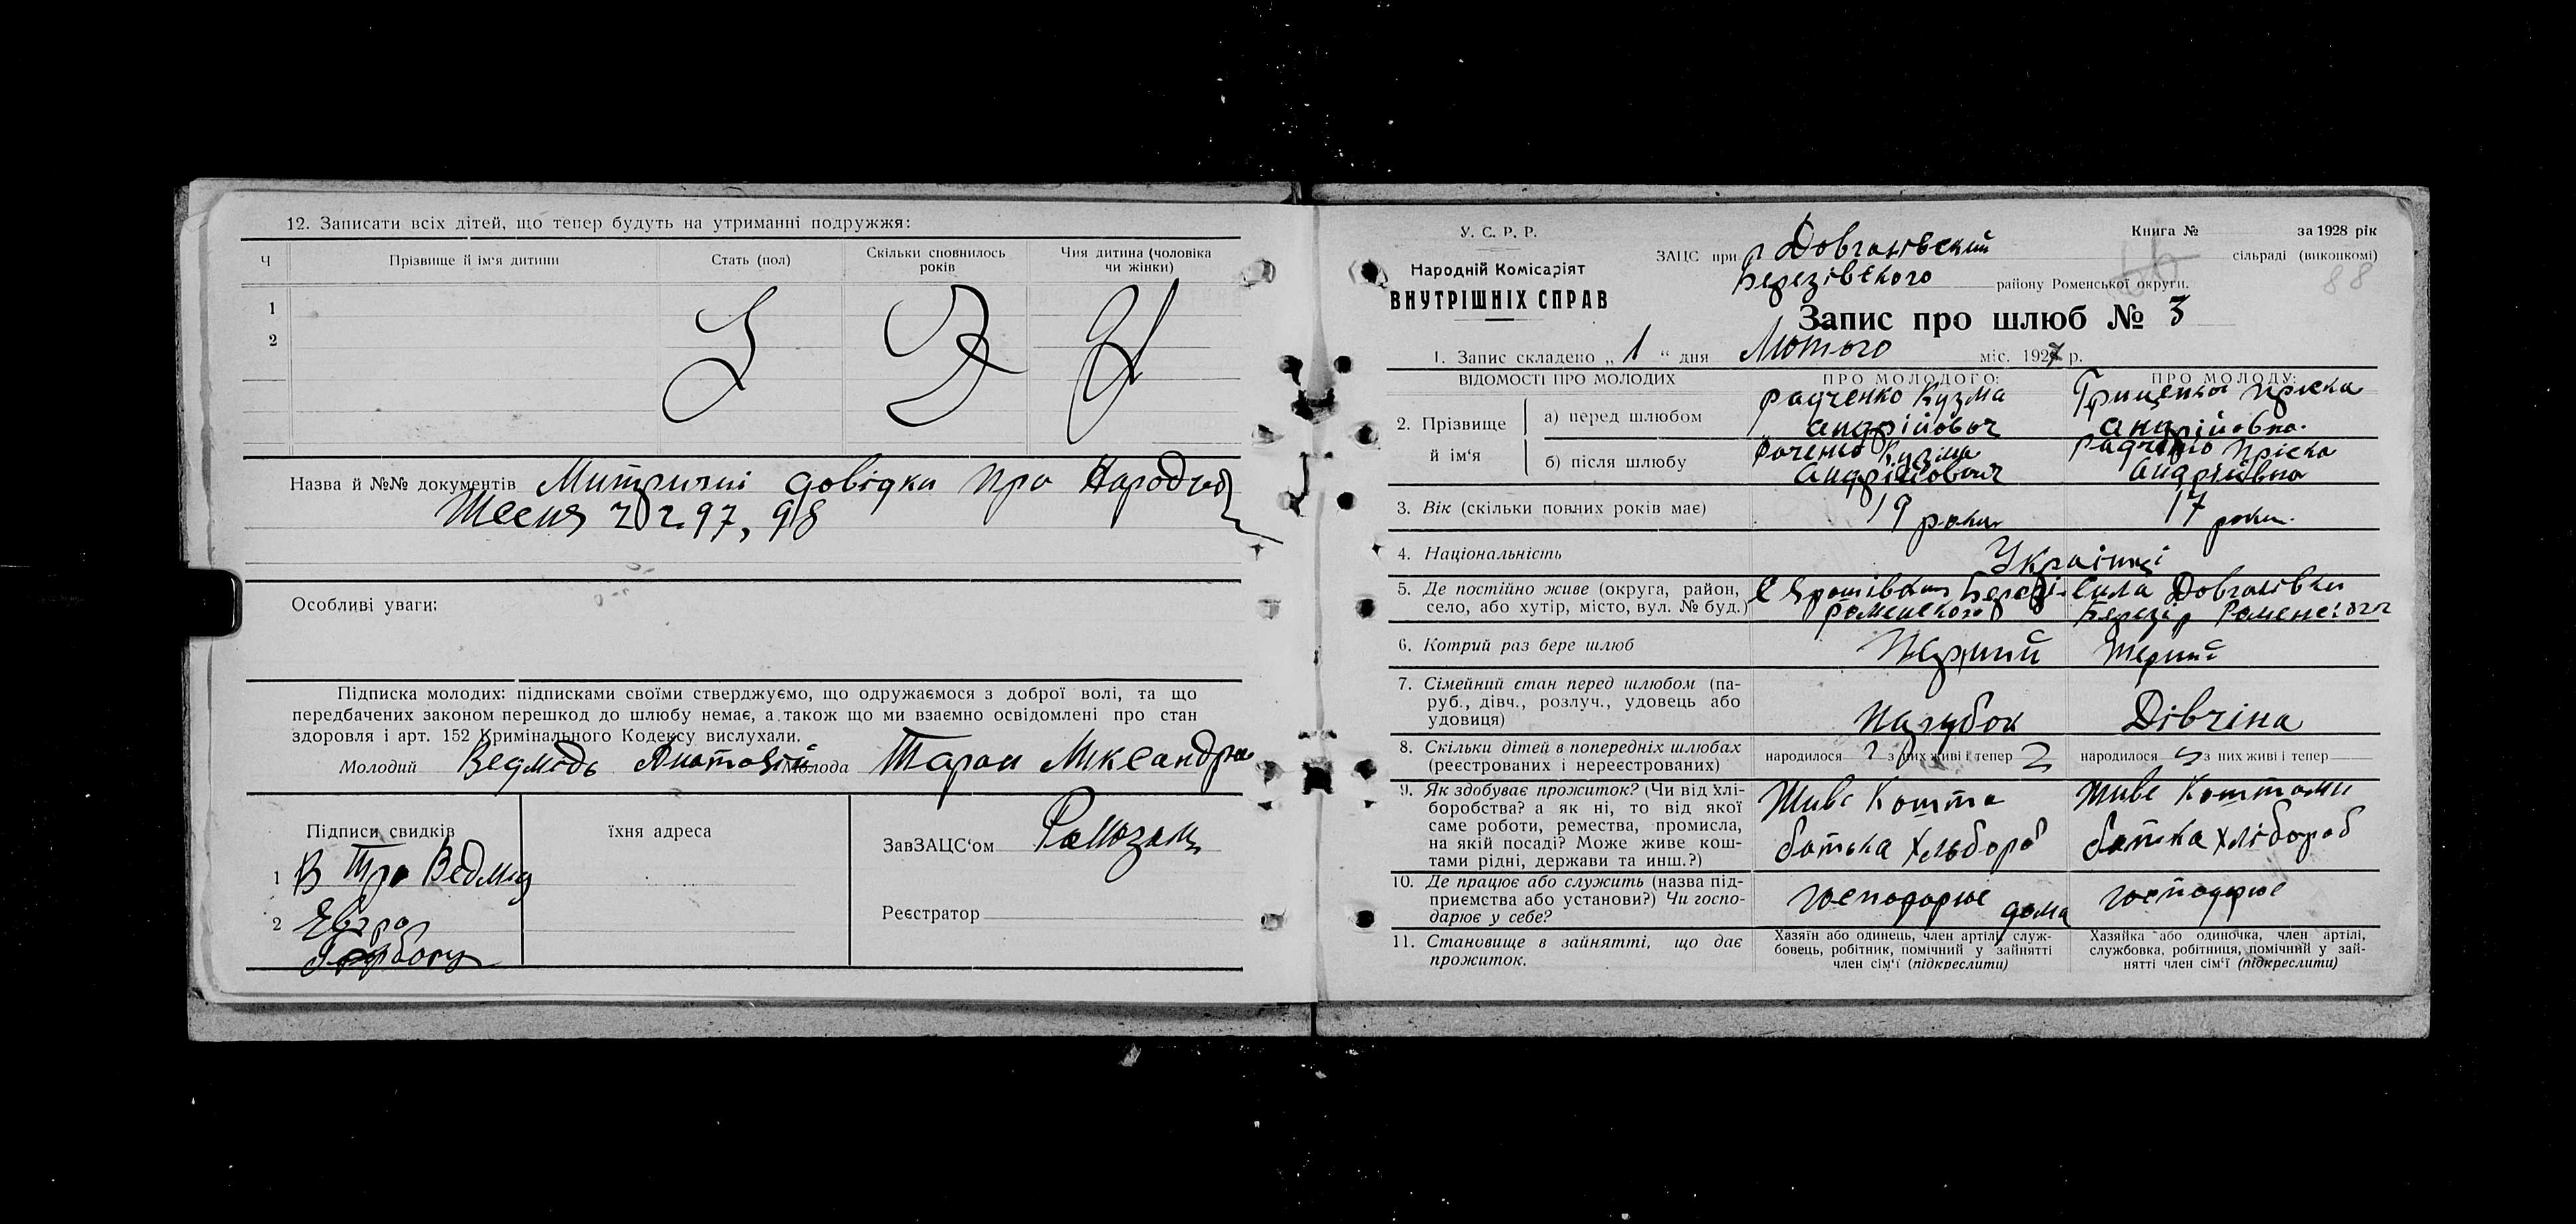 12. Записати всіх дітей, що тепер будуть на утриманні подружжя:
Ч Прізвище й ім'я дитини Стать (пол) Скільки сповнилось років Чия дитина (чоловіка чи жінки)
1
2
Назва й №№ документів довідки про Народже
97, 98
Особливі уваги:
Підписка молодих: підписками своїми стверджуємо, що одружаємося з доброї волі, та що
передбачених законом перешкод до шлюбу немає, а також що ми взаємно освідомлені про стан
здоровля і арт. 152 Кримінального Кодексу вислухали.
Молодий Ведмідь Молода Таран
Підписи свидків їхня адреса
ЗавЗАЦС'ом
1
2
Реєстратор
У. С. Р. Р.
Народній Комісаріят
ВНУТРІШНІХ СПРАВ
Книга № за 1928 рік
ЗАЦС при Довгалівскій сільраді (виконкомі)
88
Березівского району Роменської округи.
Запис про шлюб № 3
1. Запис складено „ 1 “ дня Лютого міс. 1927 р.
ВІДОМОСТІ ПРО МОЛОДИХ ПРО МОЛОДОГО: ПРО МОЛОДУ:
2. Прізвище й ім'я
а) перед шлюбом Радченко Кузма Андрійович Гриценко Пріска Андрійовна.
б) після шлюбу Раченко Кузма Андрійович Радченко Пріска Андрійвна
3. Вік (скільки повних років має) 19 роки 17 роки.
4. Національність Українці
5. Де постійно живе (округа, район, Села Довгалівки
село, або хутір, місто, вул. № буд.) Роменского Роменского
6. Котрий раз бере шлюб Перший Перший
7. Сімейний стан перед шлюбом (па-
руб., дівч., розлуч., удовець або
удовиця) Парубок Дівчина
8. Скільки дітей в попередніх шлюбах народилося з них живі і тепер народилося з них живі і тепер
(реєстрованих і нереєстрованих)
9. Як здобуває прожиток? (Чи від хлі- Живе Кошта Живе Коштами
боробства? а як ні, то від якої
саме роботи, ремества, промисла,
на якій посаді? Може живе кош- батька Хльбороб батька Хлібороб
тами рідні, держави та инш.?)
10. Де працює або служить (назва під-
приємства або установи?) Чи госпо- господорює дома господорює
дарює у себе?
11. Становище в зайнятті, що дає
прожиток.
Хазяїн або одинець, член артілі, служ-
бовець, робітник, помічний у зайнятті
член сім'ї (підкреслити)
Хазяйка або одиночка, член артілі,
службовка, робітниця, помічний у зай-
нятті член сім'ї (підкреслити)